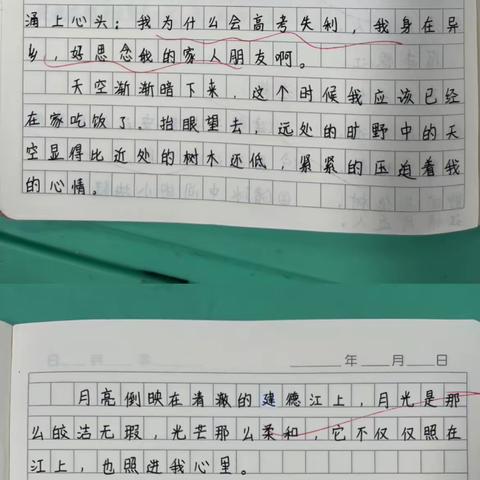 涌上心头；我为什么会高考失利，我身在异
乡，好思念我的家人朋友啊。
天空渐渐暗下来，这个时候我应该已经
在家吃饭了。抬眼望去，远处的旷野中的天
空显得比近处的树木还低，紧紧的压迫着我
的心情。
年 月 日
月亮倒映在清澈的建德江上，月光是那
么皎洁无瑕，光芒那么柔和，它不仅仅照在
江上，也照进我心里。